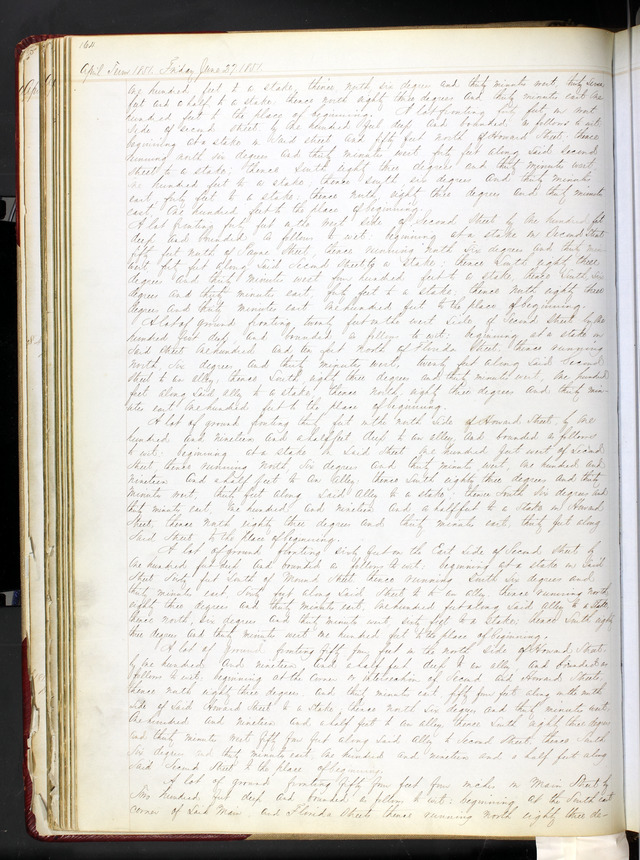 164
April Term 1851. Friday June 27, 1851
one hundred feet to a stake, thence north six degrees and thirty minutes west, thirty seven
feet and a half to a stake, thence north eighty three degrees and thirty minutes east one
hundred feet to the place of beginning. A lot fronting fifty feet on west
side of second street, by one hundred feet deep and bounded as follows to wit:
beginning at a stake on second street, and fifty feet north of Howard Street, thence
running north six degrees and thirty minutes west fifty feet along said second
street to a stake; thence South eighty three degrees and thirty minutes west
one hundred feet to a stake, thence South six degrees and thirty minutes
east, fifty feet to a stake, thence north eighty three degrees and thirty minutes
east, one hundred feet to the place of beginning.
A lot fronting fifty feet on the west side of Second Street by one hundred feet
deep and bounded as follows to wit: beginning at a stake on Second Street
fifty feet north of Street, thence running North Six degrees and thirty minutes
west fifty feet along said Second Street to a Stake; thence South eighty three
degrees and thirty minutes west one hundred feet to a stake, thence South six
degrees and thirty minutes east, fifty feet to a stake, thence north eighty three
degrees and thirty minutes east one hundred feet to the place of beginning.
A lot of ground fronting twenty feet on the west side of Second Street by one
hundred feet deep, and bounded as follows to wit: beginning at a stake on
said Street one hundred and ten feet north of Florida Street, thence running
north six degrees and thirty minutes west, twenty feet along said Second
street to an alley, thence South eighty three degrees and thirty minutes west, one hundred
feet along said alley to a stake, thence north, eighty three degrees and thirty min-
utes east one hundred feet to the place of beginning.
A lot of ground fronting thirty feet on the north side of Howard Street, by one
hundred and nineteen and a half feet deep to an alley and bounded as follows
to wit: beginning at a stake on said Street one hundred feet west of second
Street, thence running north, six degrees and thirty minutes west, one hundred and
nineteen and a half feet to an alley, thence South eighty three degrees and thirty
minutes west, thirty feet along said alley to a stake; thence South six degrees and
thirty minutes east, one hundred and nineteen and a half feet to a stake on Howard
Street, thence north eighty three degrees and thirty minutes east, thirty feet along
said Street to the place of beginning.
A lot of ground fronting sixty feet on the East side of Second Street by
one hundred feet deep and bounded as follows to wit: beginning at a stake on said
Street sixty feet South of Mound Street thence running South six degrees and
thirty minutes east sixty feet along said Street to an alley thence running north
eighty three degrees and thirty minutes east, one hundred feet along said alley to a stake,
thence north, six degrees and thirty minutes west sixty feet to a stake, thence South eighty
three degrees and thirty minutes west one hundred feet to the place of beginning.
A lot of ground fronting fifty four feet on the north side of Howard Street,
by one hundred and nineteen and a half feet deep to an alley and bounded as
follows to wit: beginning at the corner or intersection of Second and Howard Streets,
thence north eighty three degrees and thirty minutes east fifty four feet along on the north
side of said Howard Street to a stake, thence north six degrees and thirty minutes west
one hundred and nineteen and a half feet to an alley, thence South eighty three degrees
and thirty minutes west fifty four feet along said alley to Second Street, thence South
six degrees and thirty minutes east, one hundred and nineteen and a half feet along
said Second Street to the place of beginning.
A lot of ground fronting fifty four feet four inches on Main Street by
two hundred feet deep and bounded as follows to wit: beginning at the South east
corner of said Main and Florida Streets thence running north eighty three de-